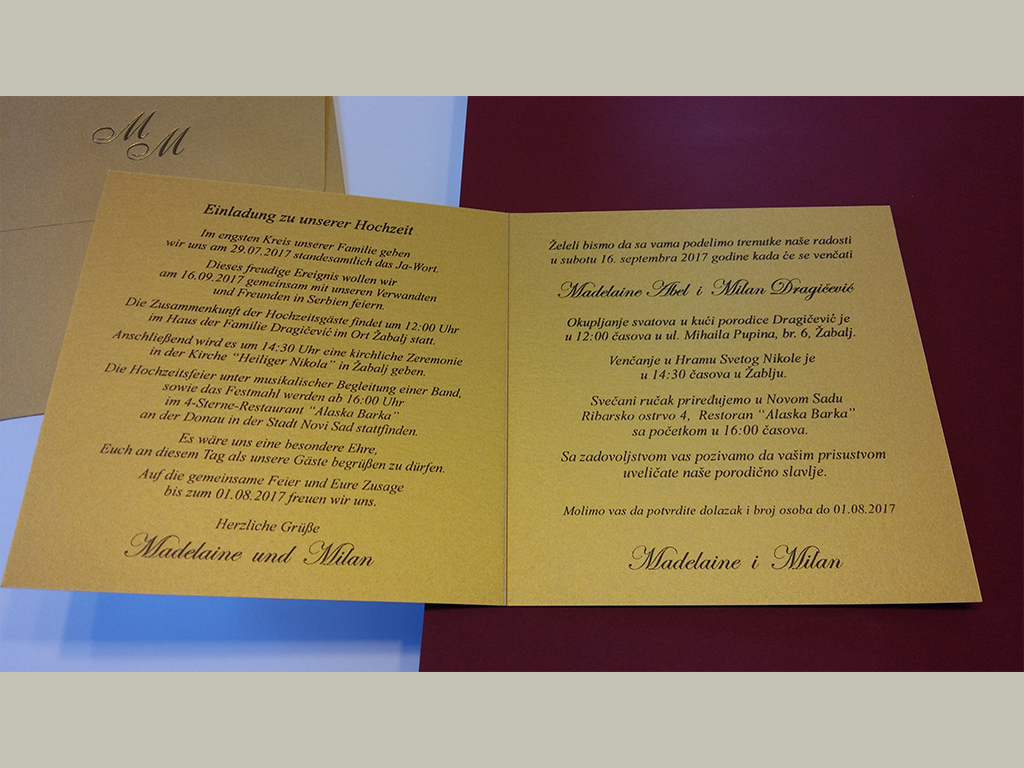 M
M
Einladung zu unserer Hochzeit
Im engsten Kreis unserer Familie geben
wir uns am 29.07.2017 standesamtlich das Ja-Wort.
Dieses freudige Ereignis wollen wir
am 16.09.2017 gemeinsam mit unseren Verwandten
und Freunden in Serbien feiern.
Die Zusammenkunft der Hochzeitsgäste findet um 12:00 Uhr
im Haus der Familie Dragičević im Ort Žabalj statt.
Anschließend wird es um 14:30 Uhr eine kirchliche Zeremonie
in der Kirche “Heiliger Nikola” in Žabalj geben.
Die Hochzeitsfeier unter musikalischer Begleitung einer Band,
sowie das Festmahl werden ab 16:00 Uhr
im 4-Sterne-Restaurant “Alaska Barka”
an der Donau in der Stadt Novi Sad stattfinden.
Es wäre uns eine besondere Ehre,
Euch an diesem Tag als unsere Gäste begrüßen zu dürfen.
Auf die gemeinsame Feier und Eure Zusage
bis zum 01.08.2017 freuen wir uns.
Herzliche Grüße
Madelaine und Milan
Želeli bismo da sa vama podelimo trenutke naše radosti
u subotu 16. septembra 2017 godine kada će se venčati
Madelaine Abel i Milan Dragičević
Okupljanje svatova u kući porodice Dragičević je
u 12:00 časova u ul. Mihaila Pupina, br. 6, Žabalj.
Venčanje u Hramu Svetog Nikole je
u 14:30 časova u Žablju.
Svečani ručak priređujemo u Novom Sadu
Ribarsko ostrvo 4, Restoran “Alaska Barka”
sa početkom u 16:00 časova.
Sa zadovoljstvom vas pozivamo da vašim prisustvom
uveličate naše porodično slavlje.
Molimo vas da potvrdite dolazak i broj osoba do 01.08.2017
Madelaine i Milan